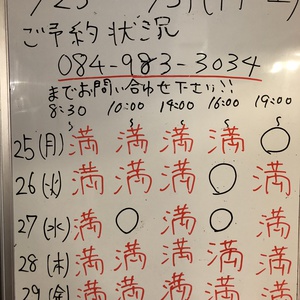 ご予約状況
084-983-3034
までお問い合わせ下さい!!
8:30 10:00 14:00 16:00 19:00
~ ~ ~ ~ ~
25(月) 満 満 満 満 ○
26(火) 満 満 満 ○ 満
27(水) 満 ○ 満 ○ 満
28(木) 満 満 満 満 満
29(金) 満 満 満 満 満